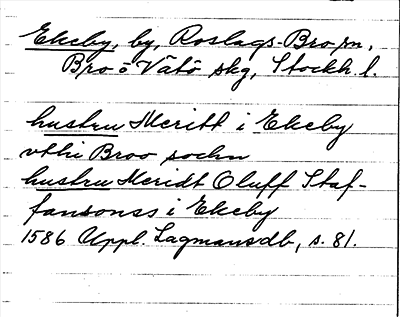 Ekeby, by, Roslags-Bro sn,
Bro o Vätö skg, Stockh. l.
hustru Meritt i Ekeby
vthi Broo sochn
hustru Meridt Oluff Staf-
fansonss i Ekeby
1586 Uppl. Lagmansdb, s. 81.